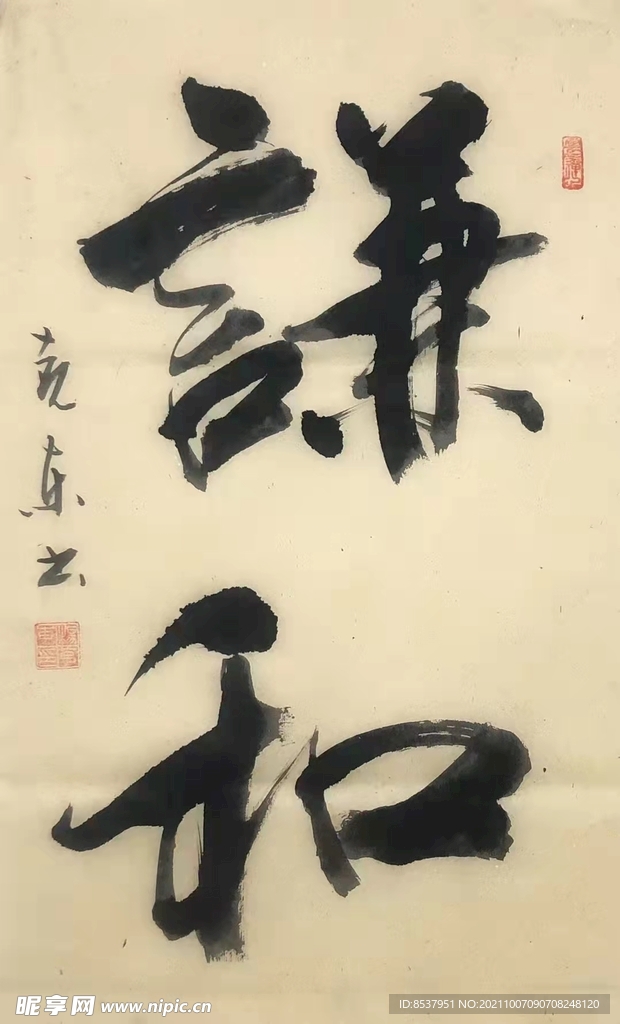 謙
和
克東书
昵享网 www.nipic.cn
ID:8537951 NO:20211007090708248120